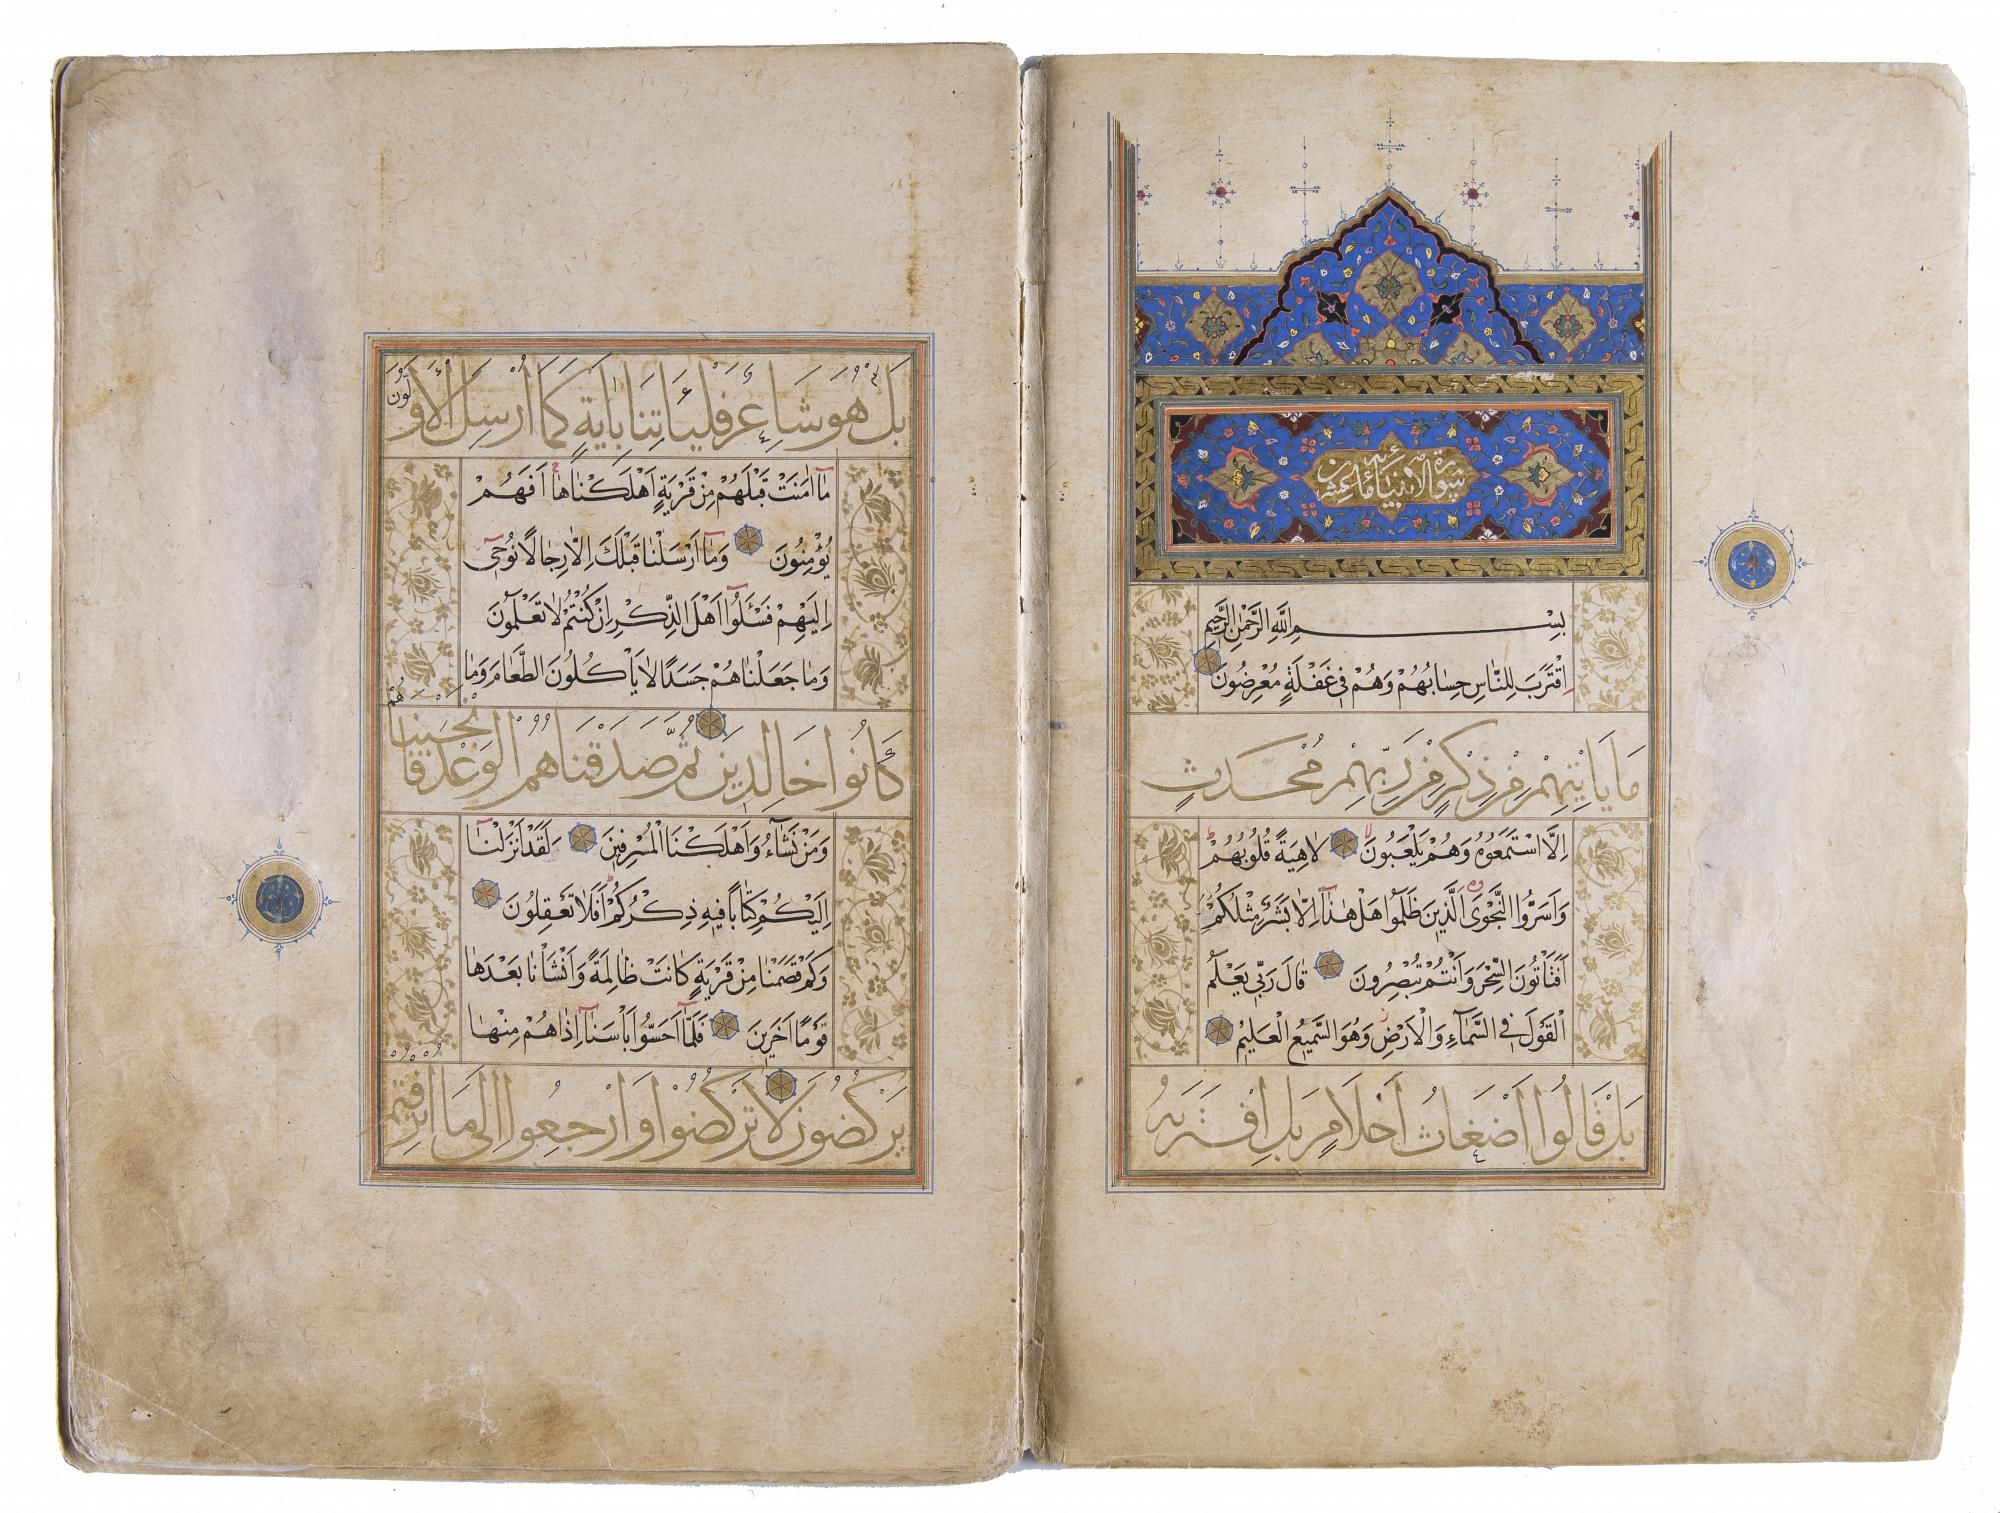 سورة الانبياء
بِسْمِ اللَّهِ الرَّحْمٰنِ الرَّحِيمِ
اِقْتَرَبَ لِلنَّاسِ حِسَابُهُمْ وَهُمْ فِي غَفْلَةٍ مُعْرِضُونَ
مَا يَاْتِيهِمْ مِنْ ذِكْرٍ مِنْ رَبِّهِمْ مُحْدَثٍ
اِلَّا اسْتَمَعُوهُ وَهُمْ يَلْعَبُونَ لَاهِيَةً قُلُوبُهُمْ
وَاَسَرُّوا النَّجْوَى الَّذِينَ ظَلَمُوا هَلْ هٰذَا اِلَّا بَشَرٌ مِثْلُكُمْ
اَفَتَاْتُونَ السِّحْرَ وَاَنْتُمْ تُبْصِرُونَ قَالَ رَبِّي يَعْلَمُ
الْقَوْلَ فِي السَّمَآءِ وَالْاَرْضِ وَهُوَ السَّمِيعُ الْعَلِيمُ
بَلْ قَالُوا اَضْغَاثُ اَحْلَامٍ بَلِ افْتَرَيهُ
بَلْ هُوَ شَاعِرٌ فَلْيَاْتِنَا بِاٰيَةٍ كَمَا اُرْسِلَ الْاَوَّلُونَ
مَآ اٰمَنَتْ قَبْلَهُمْ مِنْ قَرْيَةٍ اَهْلَكْنَاهَا اَفَهُمْ
يُؤْمِنُونَ وَمَآ اَرْسَلْنَا قَبْلَكَ اِلَّا رِجَالًا نُوحِىٓ
اِلَيْهِمْ فَسْئَلُوٓا اَهْلَ الذِّكْرِ اِنْ كُنْتُمْ لَا تَعْلَمُونَ
وَمَا جَعَلْنَاهُمْ جَسَدًا لَا يَاْكُلُونَ الطَّعَامَ وَمَا
كَانُوا خَالِدِينَ ثُمَّ صَدَقْنَاهُمُ الْوَعْدَ فَاَنْجَيْنَاهُمْ
وَمَنْ نَشَآءُ وَاَهْلَكْنَا الْمُسْرِفِينَ لَقَدْ اَنْزَلْنَآ
اِلَيْكُمْ كِتَابًا فِيهِ ذِكْرُكُمْ اَفَلَا تَعْقِلُونَ
وَكَمْ قَصَمْنَا مِنْ قَرْيَةٍ كَانَتْ ظَالِمَةً وَاَنْشَاْنَا بَعْدَهَا
قَوْمًا اٰخَرِينَ فَلَمَّآ اَحَسُّوا بَاْسَنَآ اِذَا هُمْ مِنْهَا
يَرْكُضُونَ لَا تَرْكُضُوا وَارْجِعُوا اِلٰى مَا اُتْرِفْتُمْ